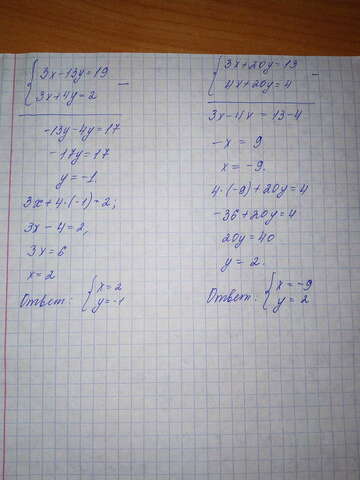 3x-13y=19
3x+4y=2
-13y-4y=17
-17y=17
y=-1.
3x+4·(-1)=2;
3x-4=2,
3x=6
x=2
Ответ: {x=2
y=-1
3x+20y=13
4x+20y=4
3x-4x=13-4
-x=9
x=-9.
4·(-9)+20y=4
-36+20y=4
20y=40
y=2.
Ответ: {x=-9
y=2